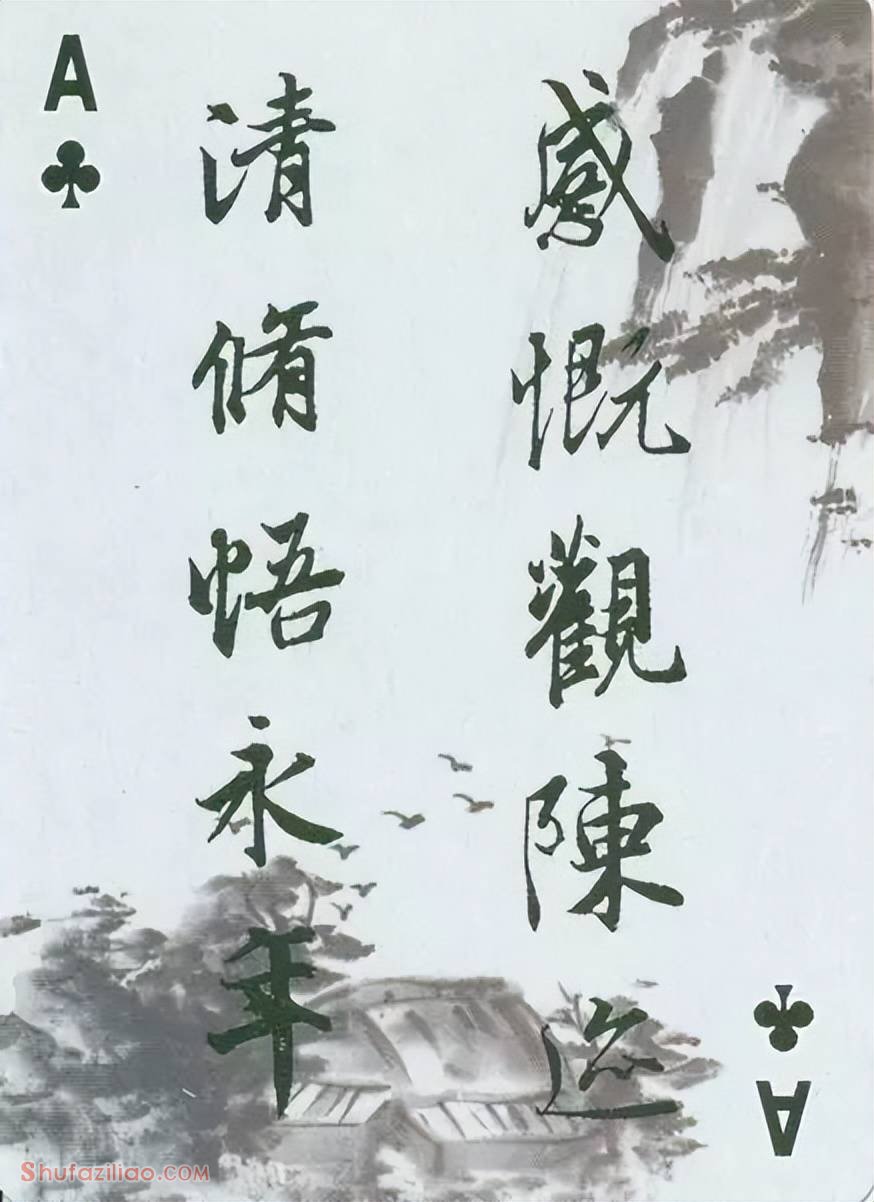 A
感慨觀陳迹
清脩悟永年
A
Shufaziliao.COM